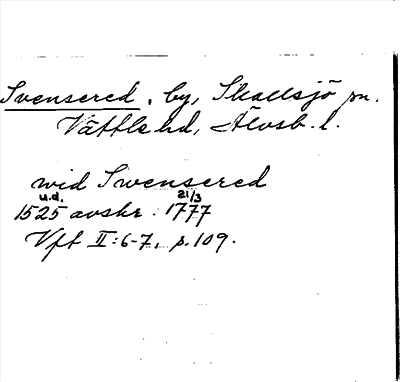 Svensered, by, Skallsjö sn.
Vättle hd, Älvsb. l.
wid Swensered
u.d. 21/3
1525 avskr. 1777
Vft II:6-7, s.109.